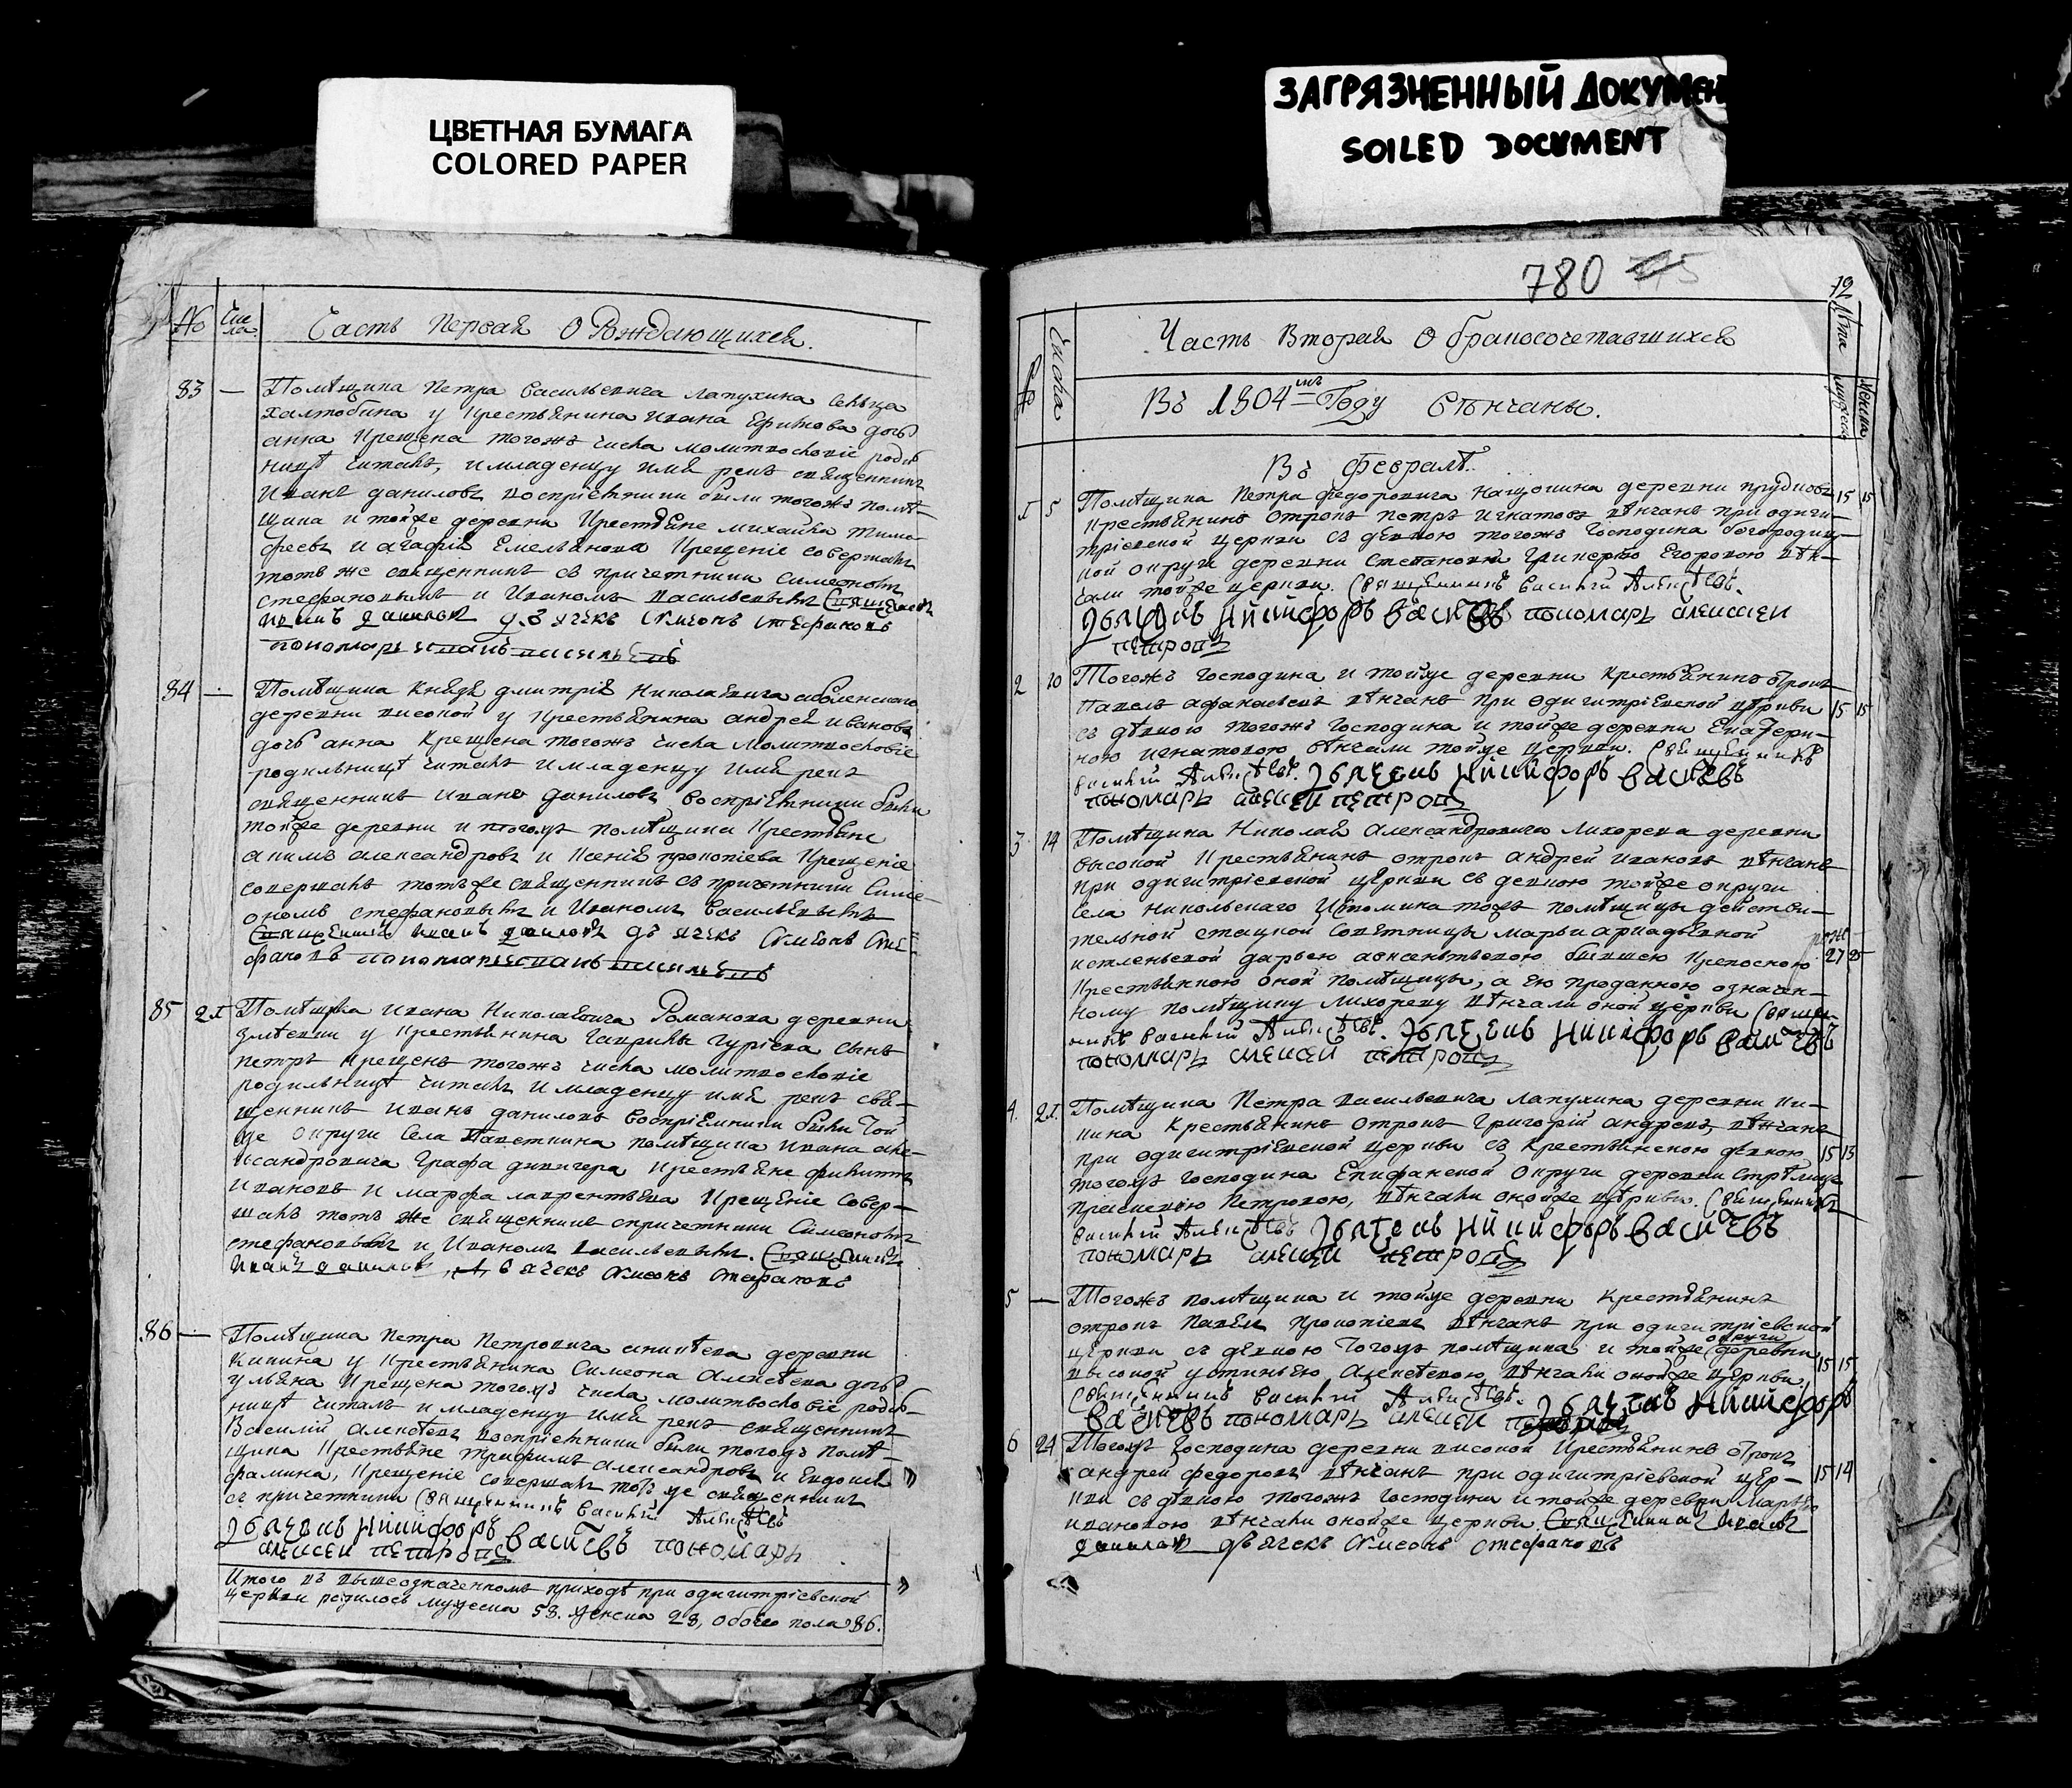 ЦВЕТНАЯ БУМАГА
COLORED PAPER
ЗАГРЯЗНЕННЫЙ ДОКУМЕН
SOILED DOCUMENT
№ Чис
ла
Часть Первая О Раждающихся.
83 — Помѣщика Петра Васильевича Лапухина сельца
Халтобина у крестьянина Ивана Ефимова дочь
анна крещена тогожъ числа молитвословіе родил
ницѣ читалъ, и младенцу имя рекъ священникъ
Иванъ даниловъ воспріемники были тогожъ помѣ-
щика и тойже деревни крестьяне михайла тимо-
феевъ и агафія Емельянова крещеніе совершалъ
тотъ же священникъ съ причетники симеономъ
стефановымъ и Иваномъ васильевымъ Священникъ
иванъ даниловъ дьячекъ симеонъ стефановъ
пономарь иванъ васильевъ
84 — Помѣщика Князя дмитрія Николаевича аболенскаго
деревни высокой у крестьянина андрея иванова
дочь анна крещена тогожъ числа молитвословіе
родильницѣ читалъ и младенцу имя рекъ
священникъ иванъ даниловъ воспріемники были
тойже деревни и тогожъ помѣщика крестьяне
акимъ александровъ и ксенія прокопіева крещеніе
совершалъ тотъже священникъ съ причетники Симе-
ономъ стефановымъ и Иваномъ васильевымъ
Священникъ иванъ даниловъ дьячекъ симеонъ сте
фановъ пономарь иванъ васильевъ
85 21 Помѣщика Ивана Николаевича Романова деревни
у крестьянина Гаврилы Гуріева сынъ
петръ крещенъ тогожъ числа молитвословіе
родильницѣ читалъ и младенцу имя рекъ свя-
щенникъ иванъ даниловъ воспріемники были той
же округи села помѣщика ивана але-
ксандровича Графа дивигера крестьяне филиппъ
ивановъ и марфа лаврентьева крещеніе совер-
шалъ тотъ же священникъ спричетники Симеономъ
стефановымъ и Иваномъ васильевымъ. Священникъ
иванъ даниловъ дьячекъ симеонъ стефановъ
86 — Помѣщика Петра Петровича деревни
Кикина у крестьянина Симеона Алексѣева дочь
ульяна крещена тогожъ числа молитвословіе родил-
ницѣ читалъ и младенцу имя рекъ священникъ
Василій алексѣевъ воспріемники были тогожъ помѣ-
щика крестьяне трифилъ александровъ и Евдокія
фамина, крещеніе совершалъ тотъ же священникъ
съ причетники священникъ василій алексѣевъ
дьяченъ никифоръ васильевъ пономарь
алексей петровъ
Итого въ вышеозначенномъ приходѣ при одигитріевской
церкви родилось мужеска 58. женска 28, обоего пола 86.
780
12
№ Числа
Часть Вторая О бракосочетавшихся
Лѣта мужеска
женска
Въ 1804мъ Году Вѣнчаны.
Въ Февралѣ
1 5 Помѣщика Петра федоровича нащокина деревни прудковъ 15 15
крестьянинъ отрокъ петръ игнатовъ вѣнчанъ при одиги-
тріевской церкви съ девкою тогожъ господина богородиц-
кой округи деревни степановки гликерью Егоровою вѣн-
чали тойже церкви. Священникъ василій Алексѣевъ.
дьяченъ никифоръ васильевъ пономарь алексей
петровъ
2 10 Тогожъ господина и тойже деревни крестьянинъ отрокъ
Павелъ афанасьевъ вѣнчанъ при одигитріевской церкви 15 15
съ дѣвкою тогожъ господина и тойже деревни Екатери-
ною игнатовою вѣнчали тойже церкви. Священникъ
василій Алексѣевъ. дьяченъ никифоръ васильевъ
пономарь алексей петровъ
3 14 Помѣщика Николая александровича Лихорева деревни
высокой крестьянинъ отрокъ андрей ивановъ вѣнчанъ
при одигитріевской церкви съ девкою тойже округи
села никольскаго помѣщицы действи-
тельной стацкой советницы марьи аркадьевной
дарьею бывшею крепосною 27 25
крестьянкою оной помѣщицы, а ею проданною означен-
ному помѣщику лихореву вѣнчали оной церкви священ
никъ василий Алексѣевъ. дьяченъ никифоръ васильевъ
пономарь алексей петровъ
4. 21. Помѣщика Петра васильевича лапухина деревни ки-
кина крестьянинъ отрокъ григорій андреевъ, вѣнчанъ
при одигитріевской церкви съ крестьянскою дѣвкою 15 13
тогожъ господина Епифанской округи деревни
Петровою, вѣнчали онойже церкви. Священникъ
василий Алексѣевъ дьяченъ никифоръ васильевъ
пономарь алексей петровъ
5 — Тогожъ помѣщика и тойже деревни крестьянинъ
отрокъ павелъ прокопіевъ вѣнчанъ при одигитріевской
церкви съ дѣвкою тогожъ помѣщика и тойже округи деревни
высокой устиньею алексѣевою вѣнчали онойже церкви, 15 15
Священникъ василий Алексѣевъ. дьяченъ никифоръ
васильевъ пономарь алексей петровъ
6 24 Тогожъ господина деревни высокой крестьянинъ отрокъ
андрей федоровъ вѣнчанъ при одигитріевской цер- 15 14
кви съ дѣвкою тогожъ господина и тойже деревни марьею
ивановою вѣнчали онойже церкви. Священникъ иванъ
даниловъ дьячекъ симеонъ стефановъ